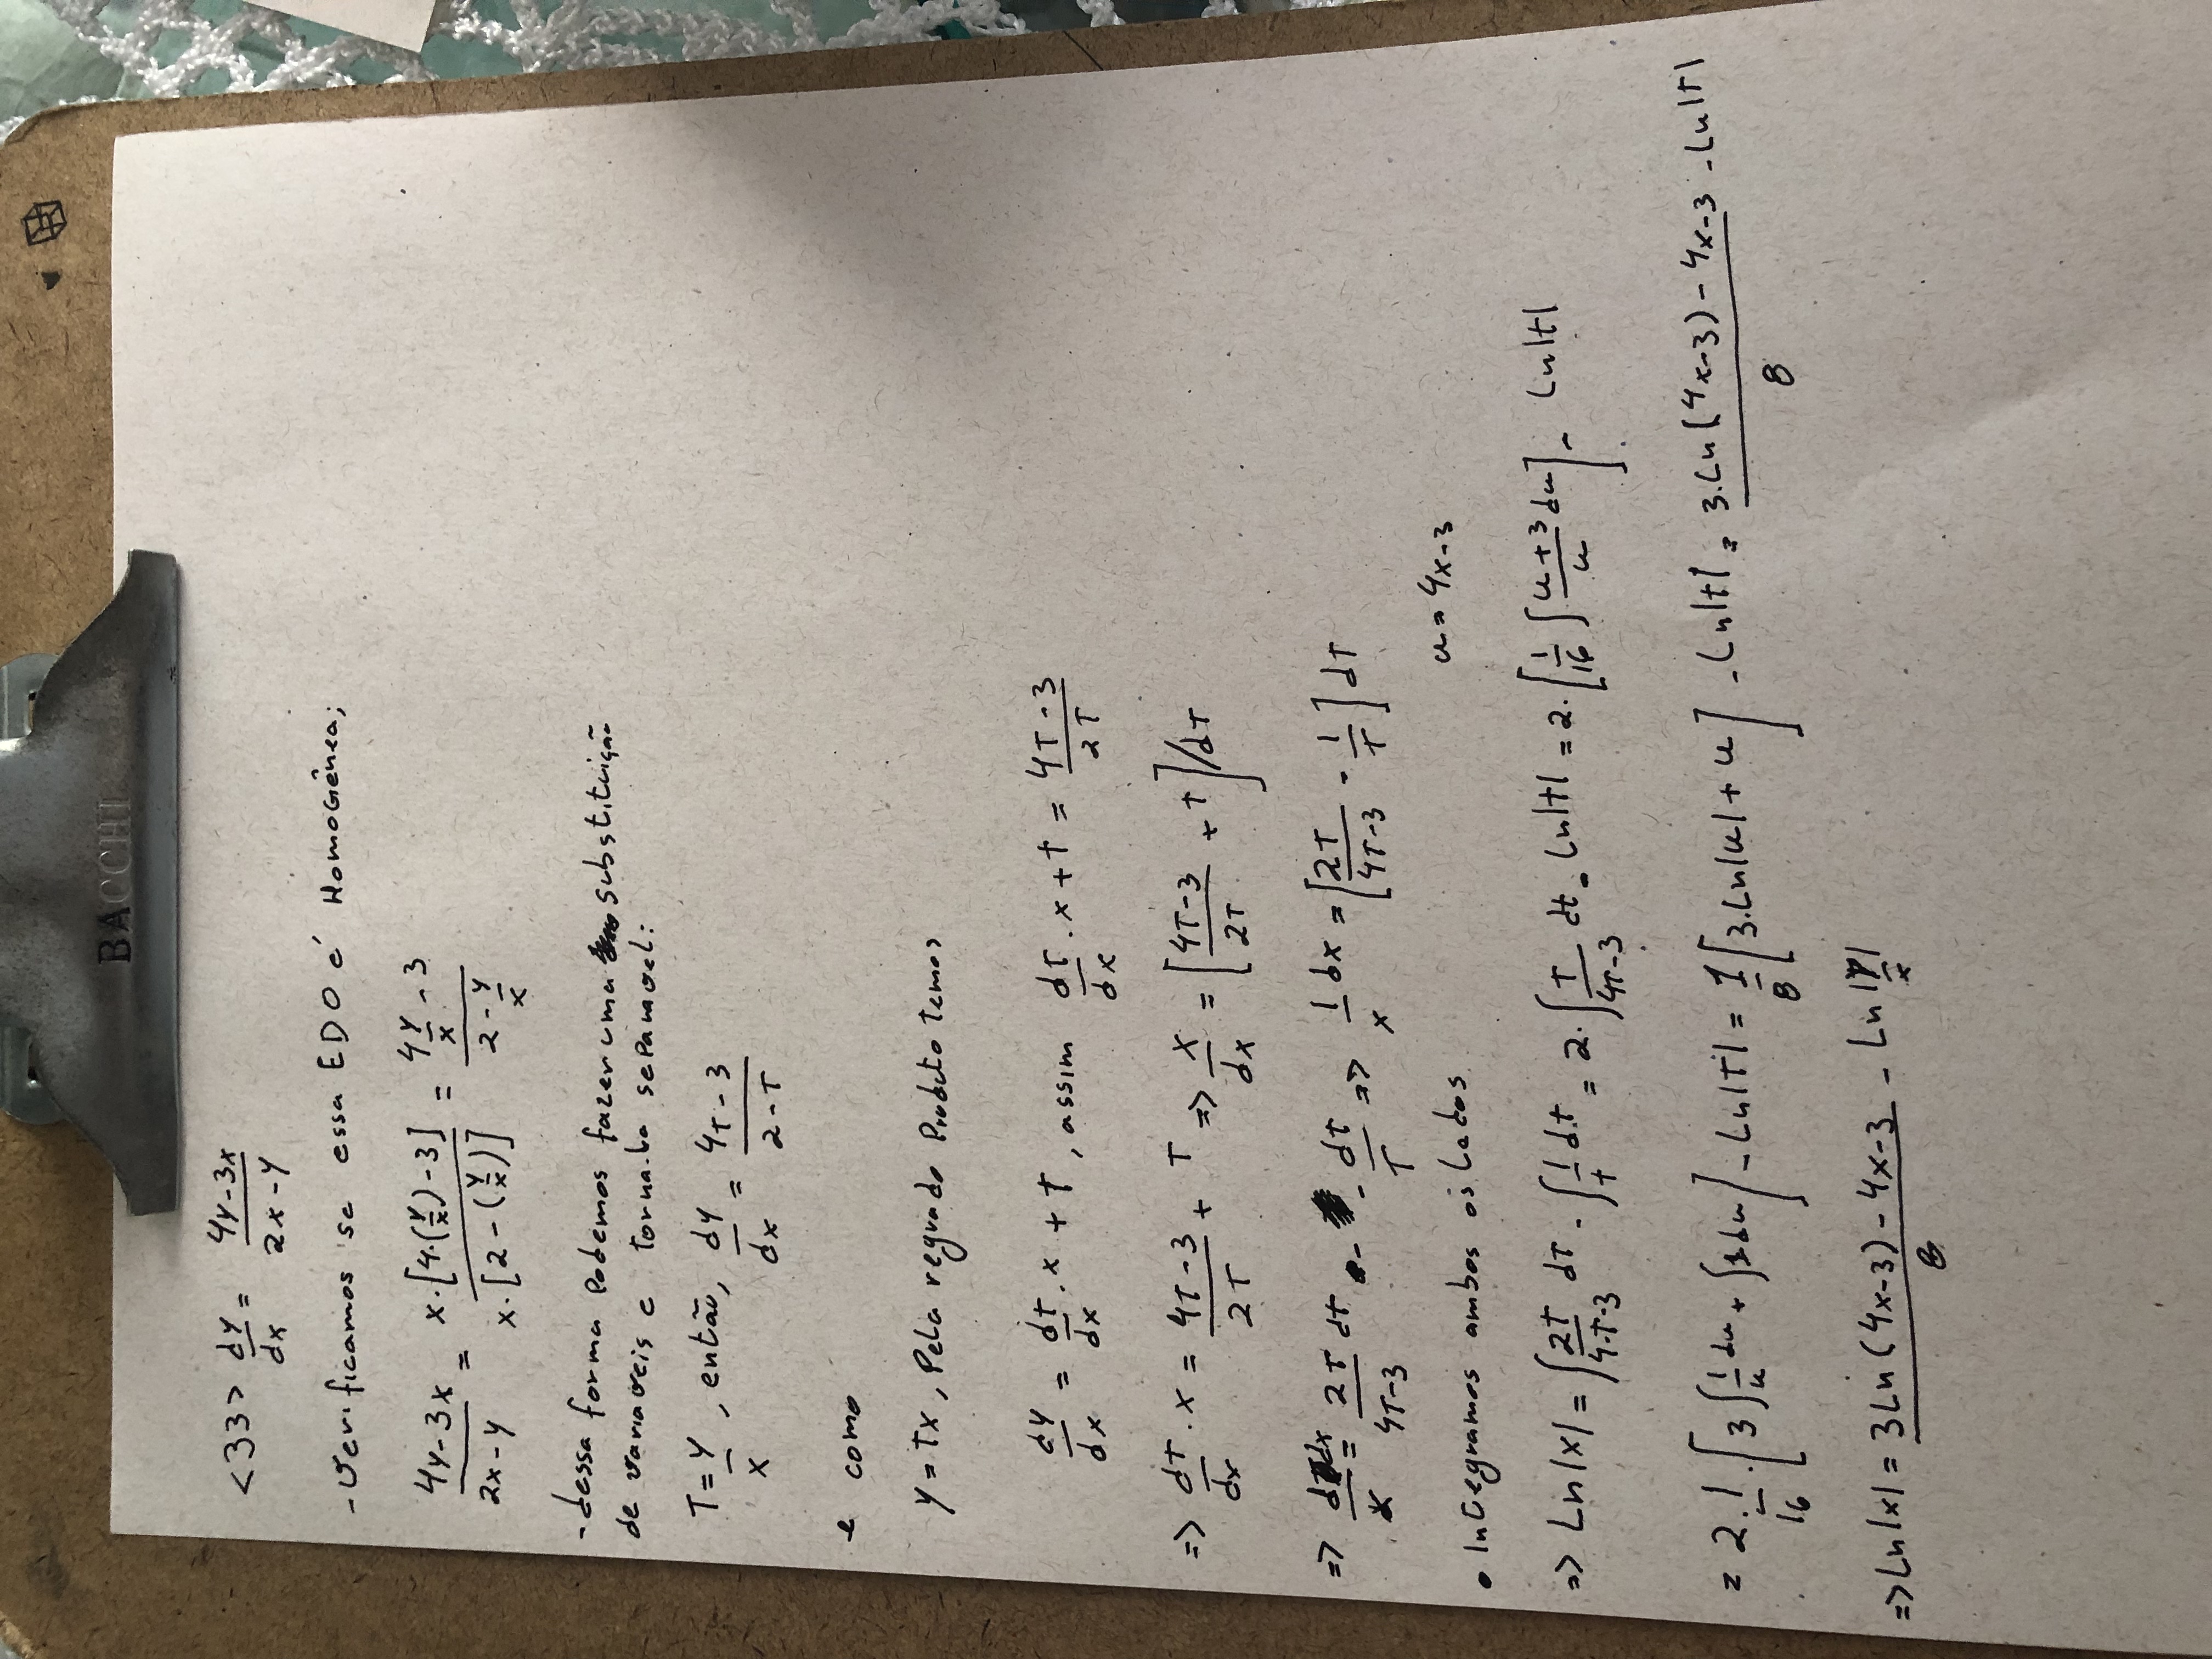 BACCHI
<33> dy/dx = (4y-3x)/(2x-y)
- Verificamos se essa EDO é Homogênea;
(4y-3x)/(2x-y) = x.[4.(y/x)-3]/x.[2-(y/x)] = (4y/x - 3)/(2 - y/x)
- dessa forma Podemos fazer uma substituição
de variaveis e torna-la separavel:
T = y/x, então, dy/dx = (4T-3)/(2-T)
e como
y = Tx, Pela regra do Produto temos
dy/dx = dt/dx . x + T, assim dT/dx . x + t = (4T-3)/2T
=> dT/dx . x = (4T-3)/2T + T => x/dx = [(4T-3)/2T + T]/dT
=> dx/x = 2T/(4T-3) dt - - dt/T => 1/x dx = [2T/(4T-3) - 1/T] dT
u = 4x-3
• Integramos ambos os lados
=> Ln|x| = ∫2T/(4.T-3) dT - ∫1/t dt = 2.∫T/(4T-3) dt - Ln|t| = 2.[1/16 ∫(u+3)/u du] - Ln|t|
= 2.1/16.[3∫1/u du + ∫1du] - Ln|T| = 1/8[3.Ln|u| + u] - Ln|t| = (3.Ln(4x-3) - 4x-3)/8 - Ln|t|
=> Ln|x| = (3Ln(4x-3) - 4x-3)/8 - Ln|y/x|